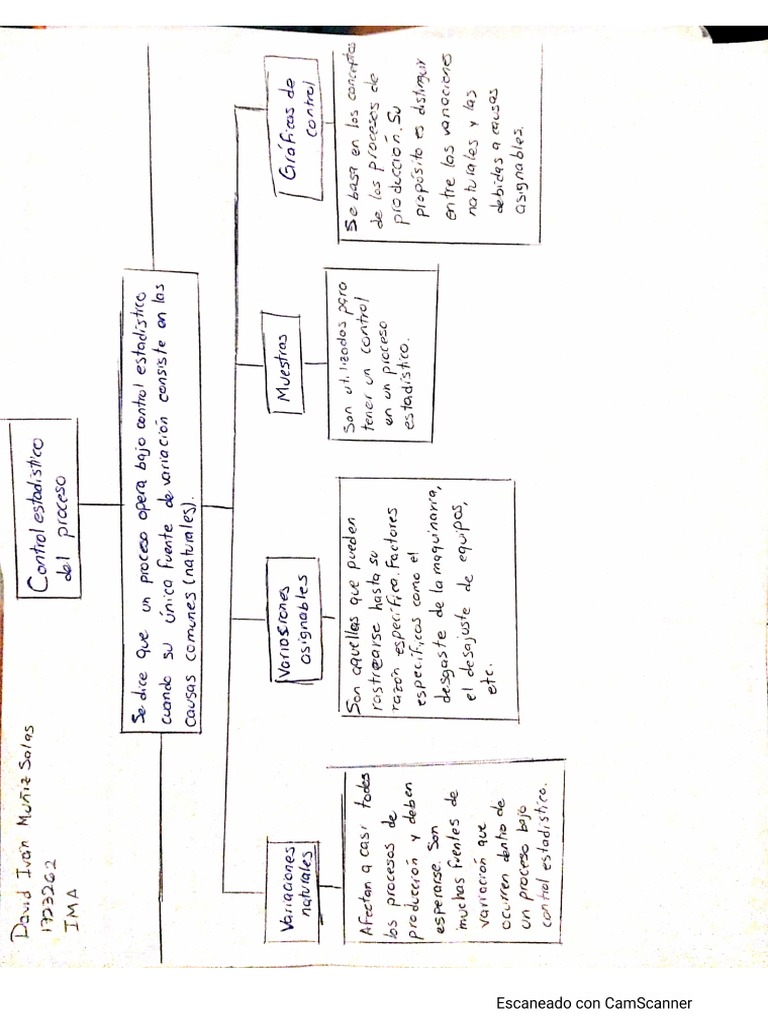 David Iván Muñiz Salas
1723262
IMA
Control estadístico
del proceso
Se dice que un proceso opera bajo control estadístico
cuando su única fuente de variación consiste en las
causas comunes (naturales).
Variaciones
naturales
Afectan a casi todos
los procesos de
producción y deben
esperarse. Son
muchas fuentes de
variación que
ocurren dentro de
un proceso bajo
control estadístico.
Variaciones
asignables
Son aquellas que pueden
rastrearse hasta su
razón específica. Factores
específicos como el
desgaste de la maquinaria,
el desajuste de equipos,
etc.
Muestras
Son utilizados para
tener un control
en un proceso
estadístico.
Gráficas de
control
Se basa en los conceptos
de los procesos de
producción. Su
propósito es distinguir
entre las variaciones
naturales y las
debidas a causas
asignables.
Escaneado con CamScanner